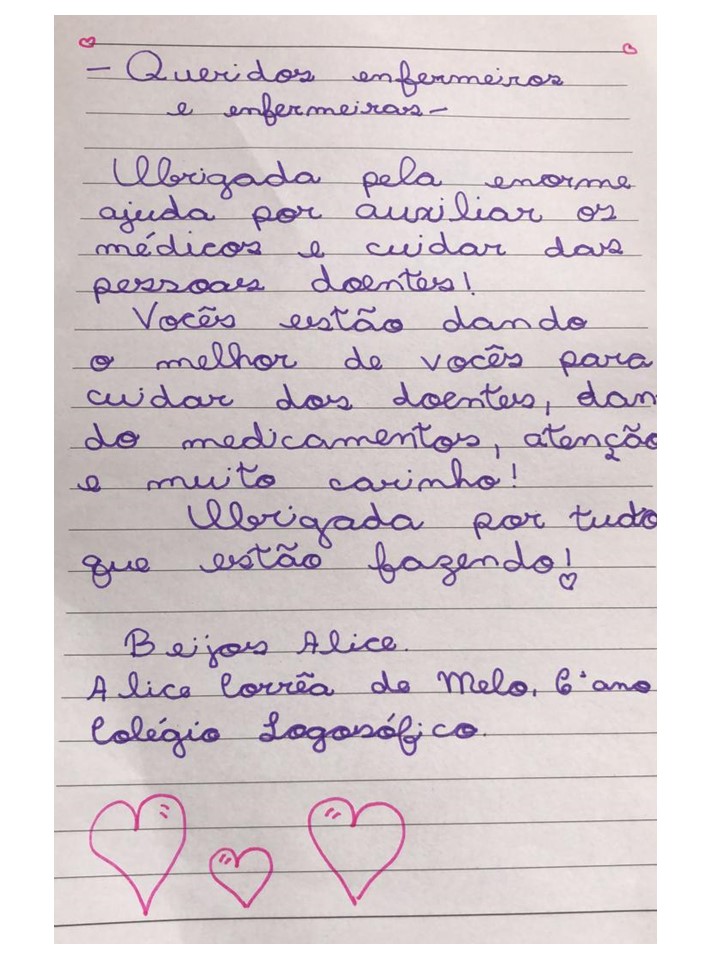 - Queridos enfermeiros
e enfermeiras -
Obrigada pela enorme
ajuda por auxiliar os
médicos e cuidar das
pessoas doentes!
Vocês estão dando
o melhor de vocês para
cuidar dos doentes, dan
do medicamentos, atenção
e muito carinho!
Obrigada por tudo
que estão fazendo!
Beijos Alice.
Alice Corrêa de Melo. 6° ano
Colégio Logosófico.